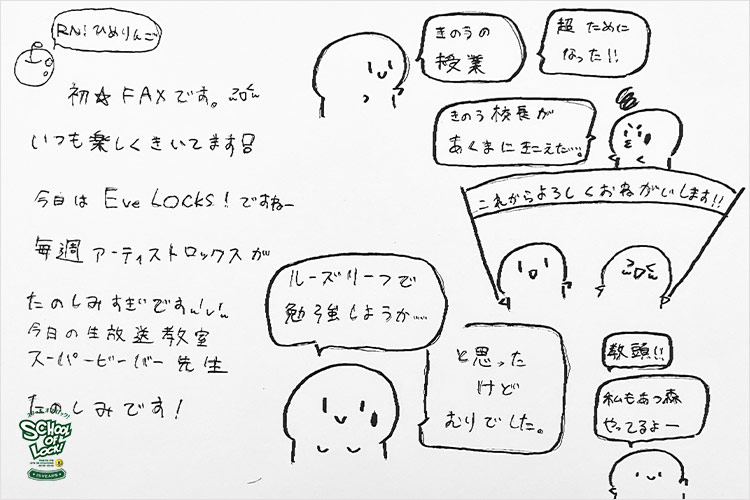 RN:ひめりんご
初☆FAXです。
いつも楽しくきいてます
今日は Eve LOCKS!ですねー
毎週 アーティストロックスが
たのしみすぎですんいん
今日の生放送教室
スーパービーバー先生
たのしみです!
SCHOOL OF LOCK!
きのうの
授業
超 ために
なった!!
きのう校長が
あくまにきこえた…。
これからよろしくおねがいします!!
ルーズリーフで
勉強しようか……
と思った
けど
むりでした。
教頭!!
私もあつ森
やってるよー